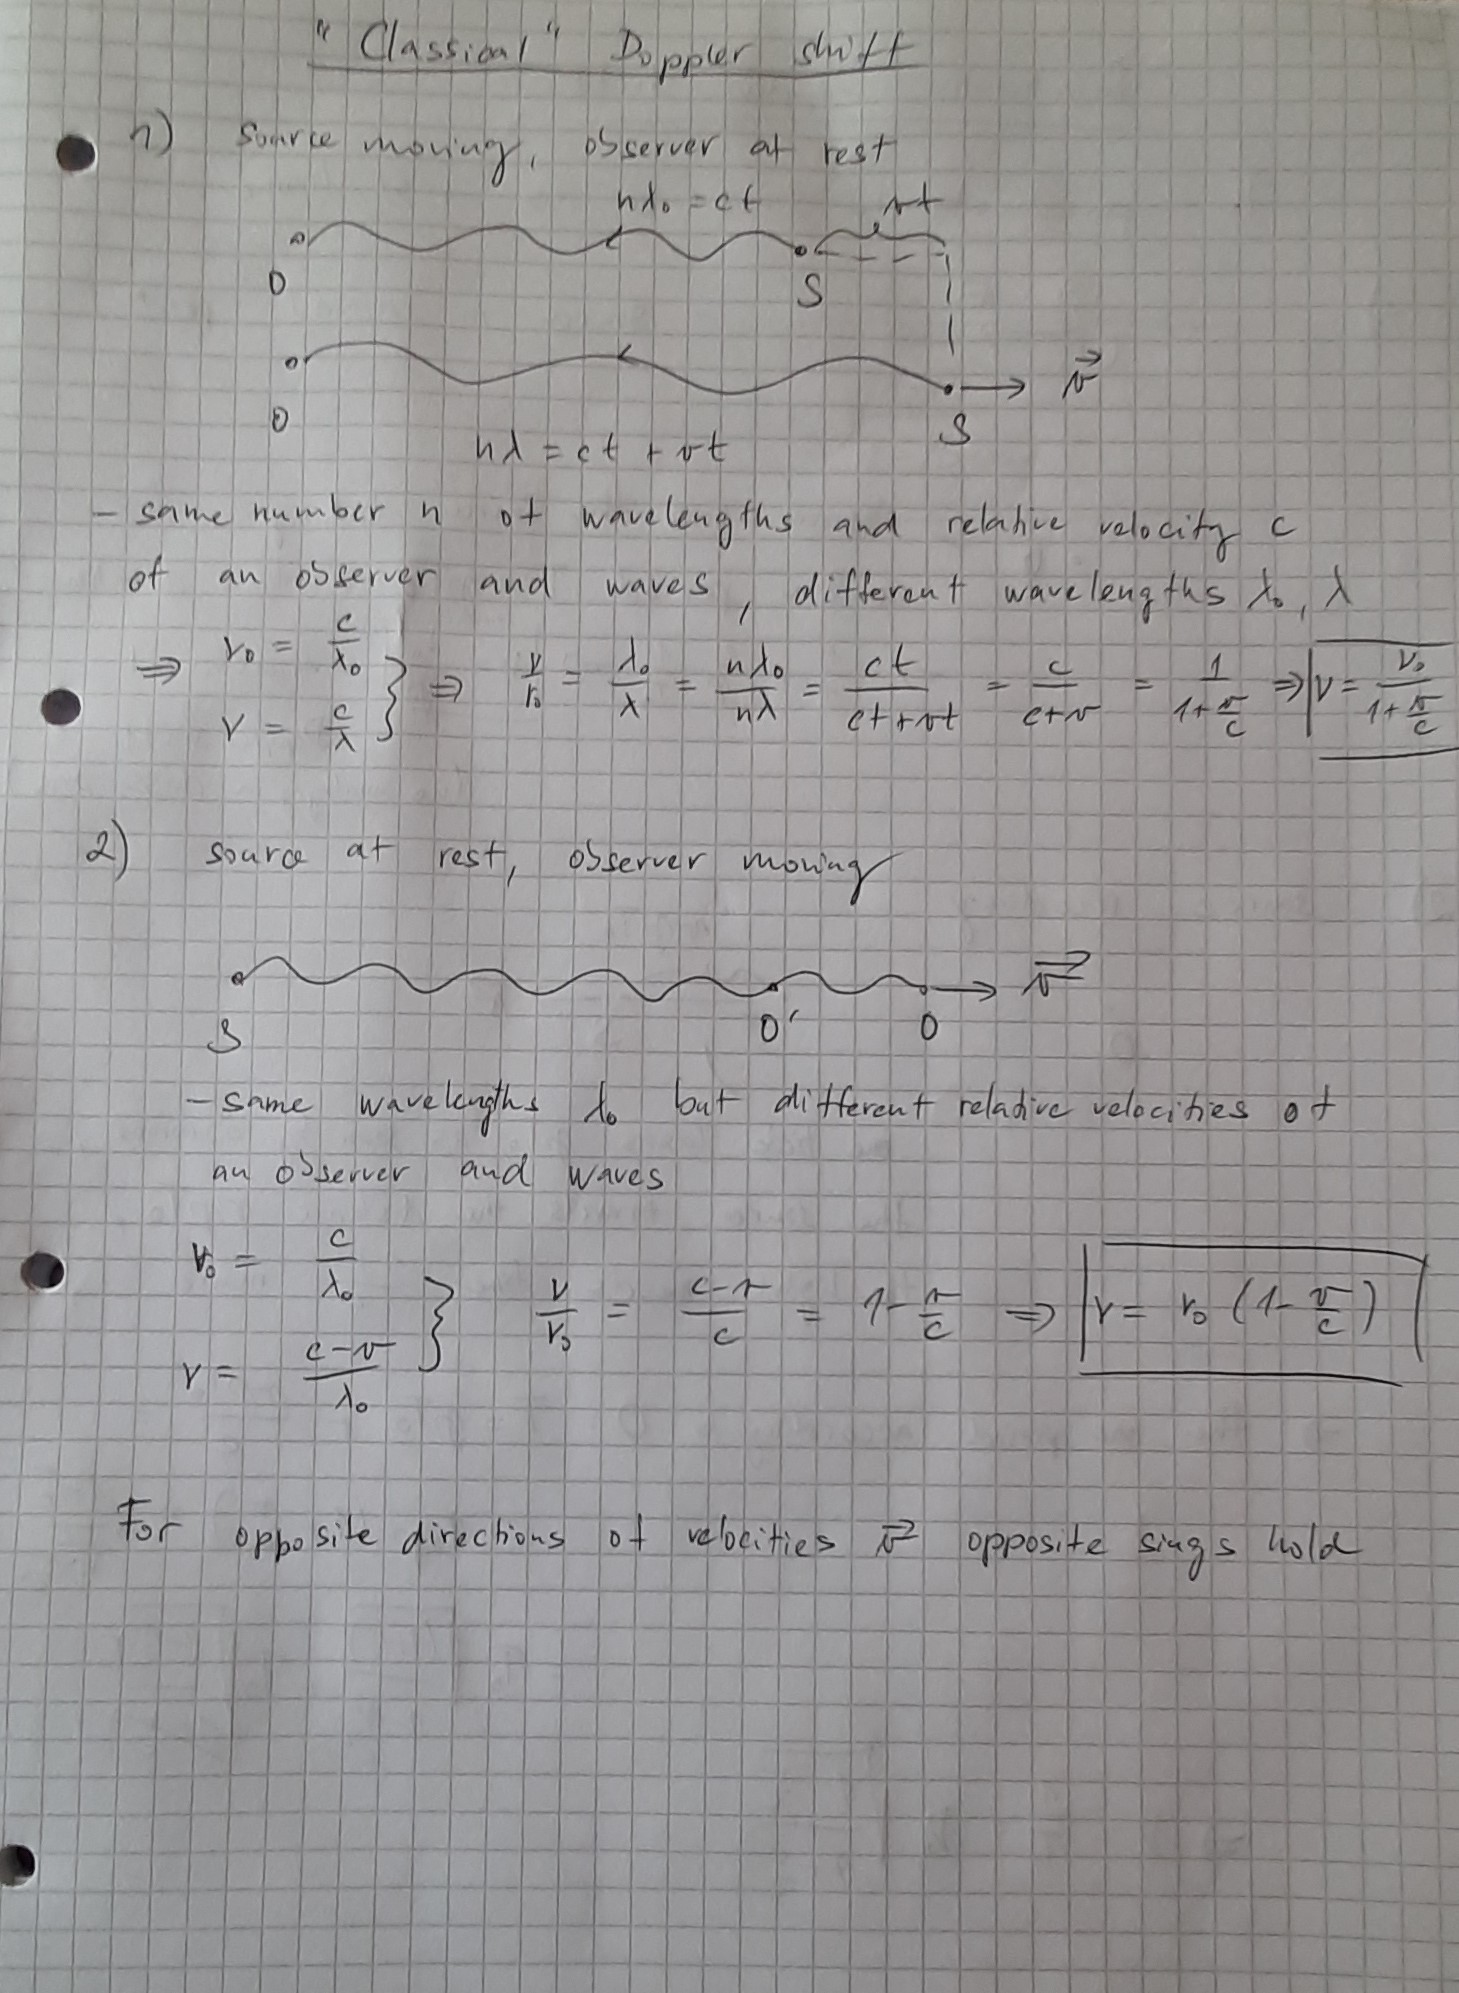 "Classical" Doppler shift
1) source moving, observer at rest
nλ₀ = ct vt
O S
O S v⃗
nλ = ct + vt
- same number n of wavelengths and relative velocity c
of an observer and waves, different wavelengths λ₀, λ
⇒ ν₀ = c/λ₀
ν = c/λ } ⇒ ν/ν₀ = λ₀/λ = nλ₀/nλ = ct/(ct+vt) = c/(c+v) = 1/(1+v/c) ⇒ ν = ν₀/(1+v/c)
2) source at rest, observer moving
S O' O v⃗
- same wavelengths λ₀ but different relative velocities of
an observer and waves
ν₀ = c/λ₀
ν = (c-v)/λ₀ } ν/ν₀ = (c-v)/c = 1 - v/c ⇒ ν = ν₀ (1 - v/c)
For opposite directions of velocities v⃗ opposite sings hold